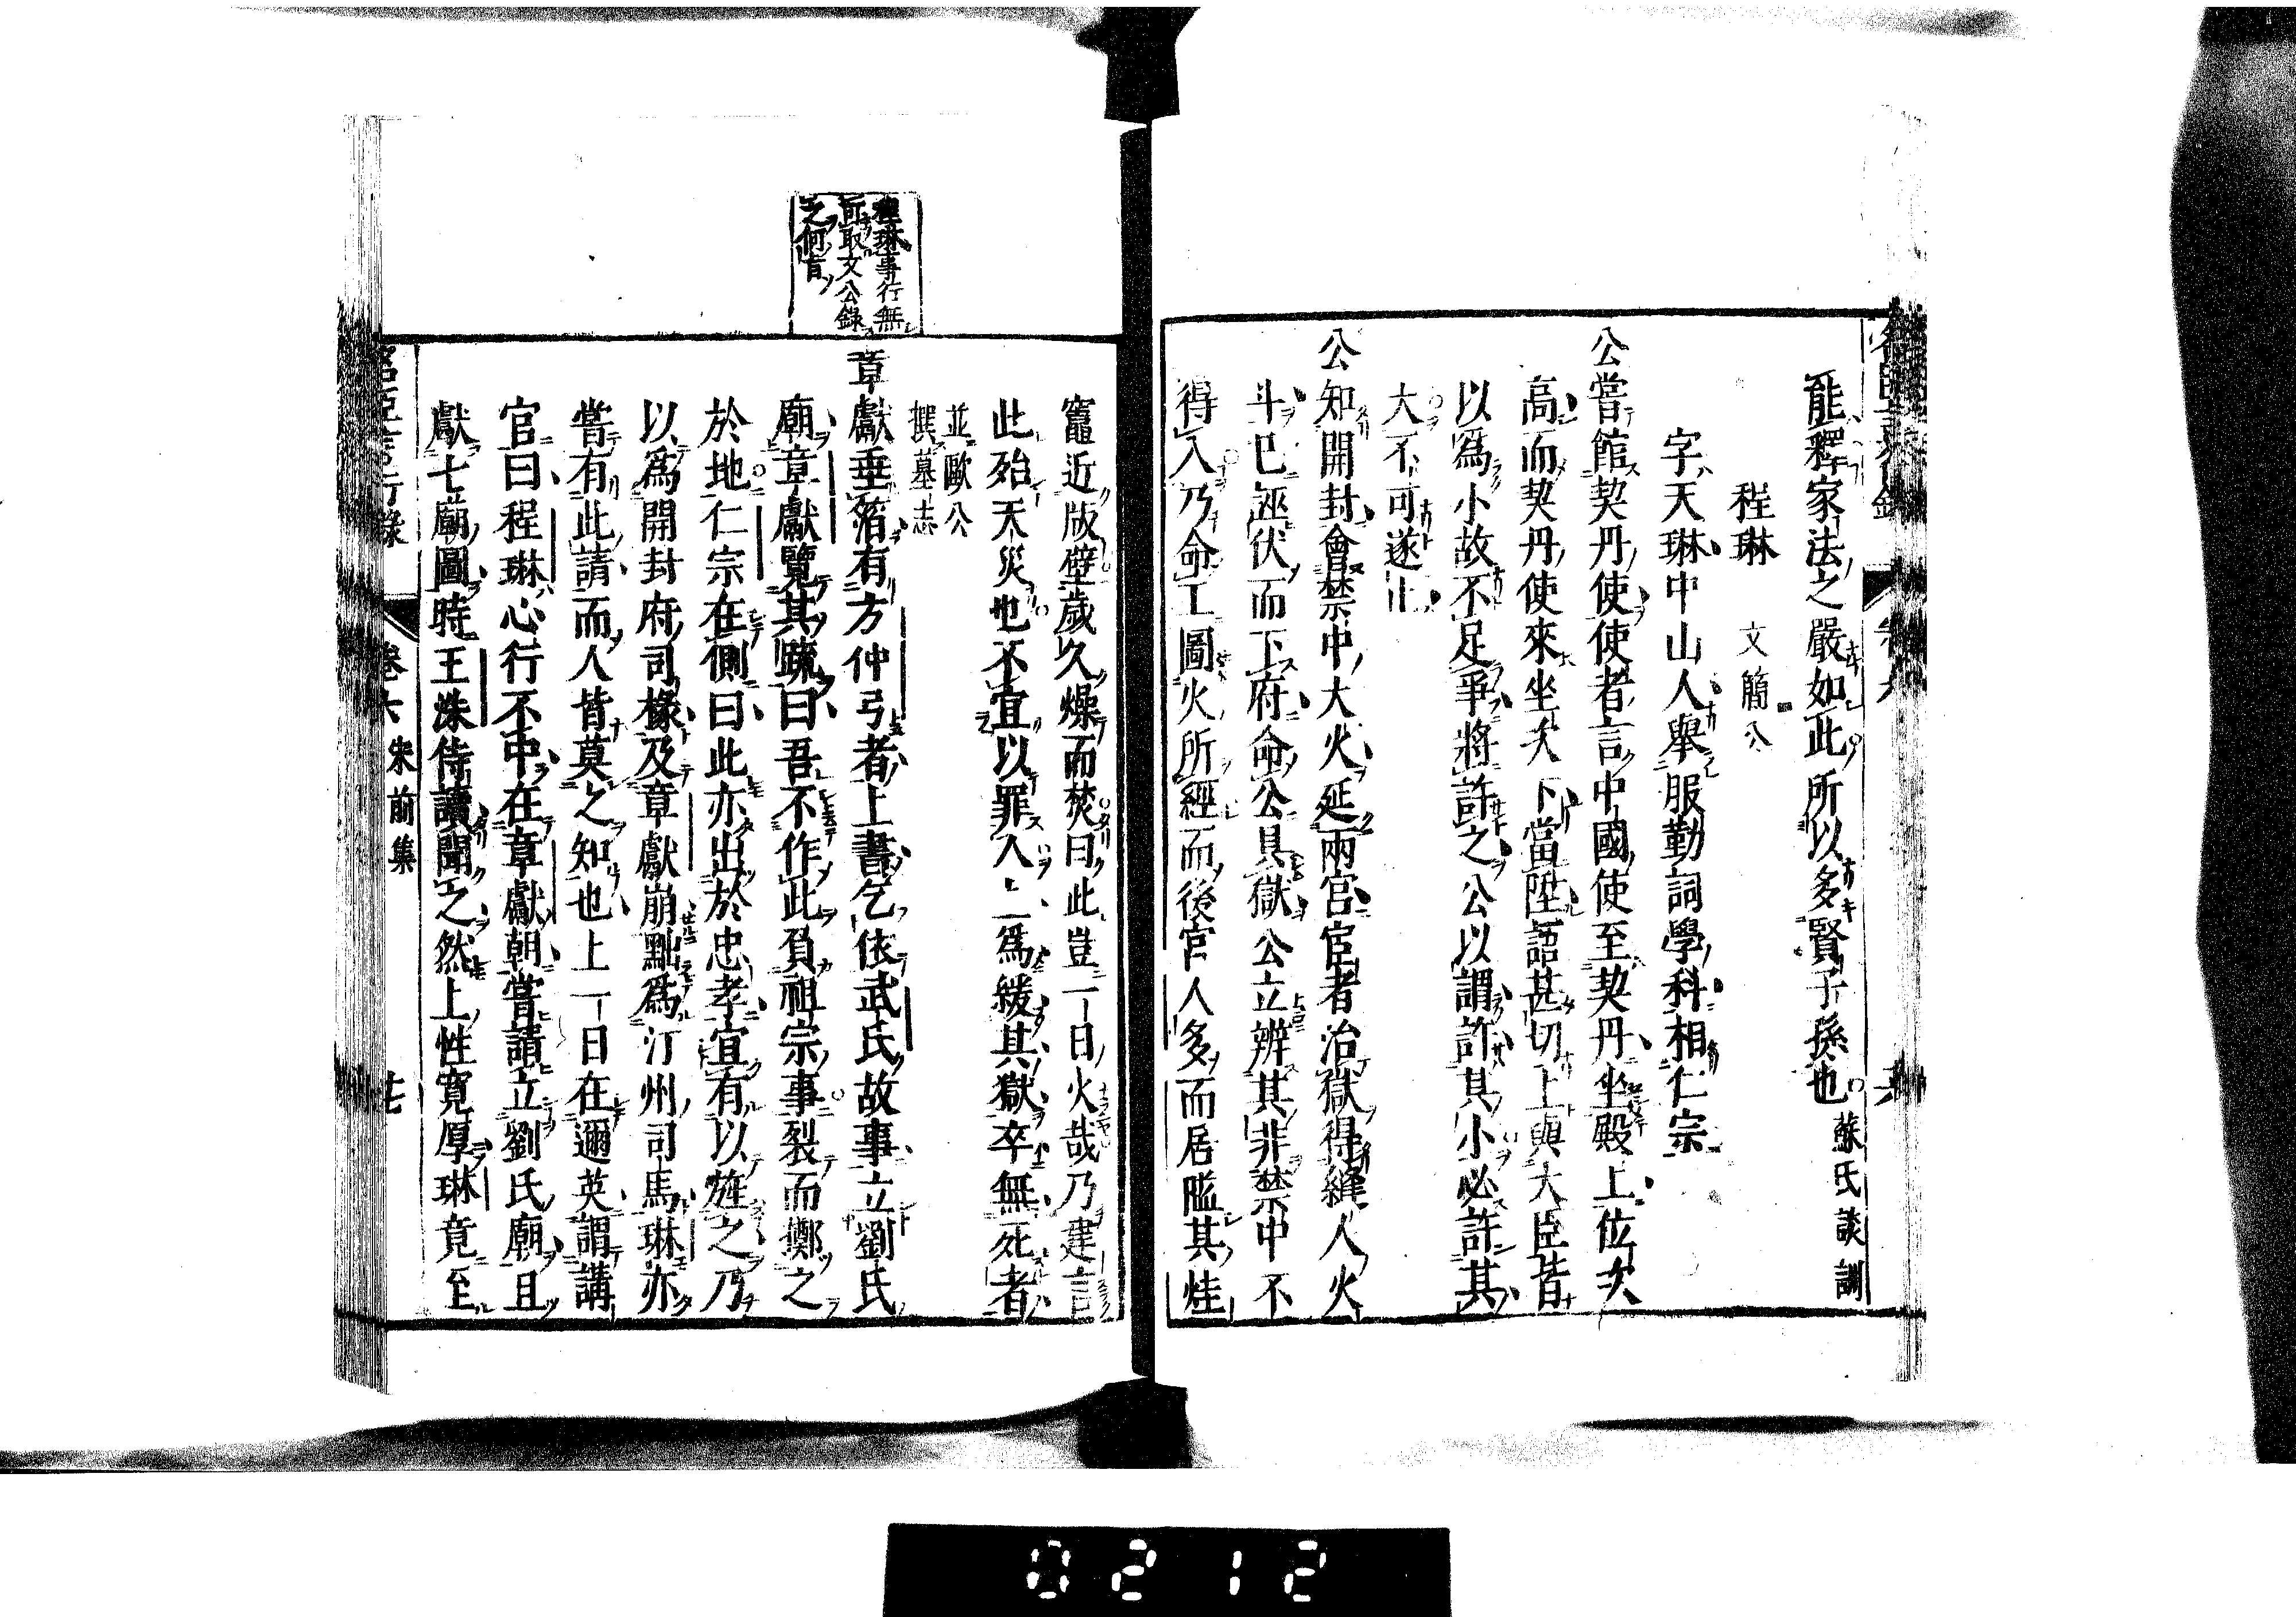 能釋家法之嚴如此所以多賢子孫也 蘇氏談訓
程琳 文簡公
字天琳中山人舉服勤詞學科相仁宗
公嘗館契丹使使者言中國使至契丹坐殿上位次
高而契丹使來坐次下當陞語甚切上與大臣皆
以爲小故不足爭將許之公以謂許其小必許其
大不可遂止
公知開封會禁中大火延兩宮宦者治獄得縫人火
斗已誣伏而下府命公具獄公立辨其非禁中不
得入乃命工圖火所經而後宮人多而居隘其烓
竈近版壁歲久燥而焚曰此豈一日火哉乃建言
此殆天災也不宜以罪人上爲緩其獄卒無死者
並歐公
撰墓志
章獻垂箔有方仲弓者上書乞依武氏故事立劉氏
廟章獻覽其疏曰吾不作此負祖宗事裂而擲之
於地仁宗在側曰此亦出於忠孝宜有以旌之乃
以爲開封府司椽及章獻崩黜爲汀州司馬琳亦
嘗有此請而人皆莫之知也上一日在邇英謂講
官曰程琳心行不中在章獻朝嘗請立劉氏廟且
獻七廟圖時王洙侍讀聞之然上性寬厚琳竟至
程琳事行無
可取文公錄
之何有
名臣言行錄 卷六 朱前集 廿七
0212